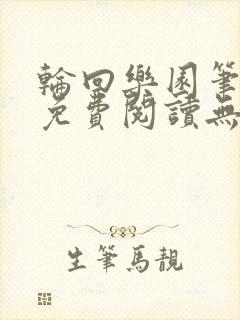 輪回樂園筆
免費閱讀無
生筆馬靚